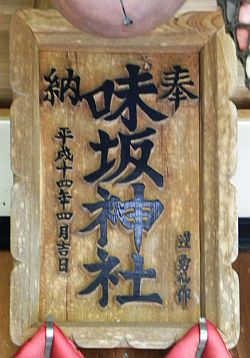 奉納
味坂神社
平成十四年四月吉日